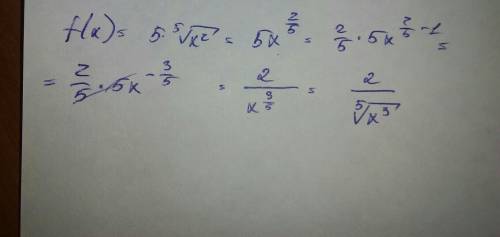 f(x) = 5·⁵√x² = 5x^(2/5) = 2/5 · 5x^(2/5 − 1) =
= 2/5 · 5x^(−3/5) = 2/x^(3/5) = 2/⁵√x³